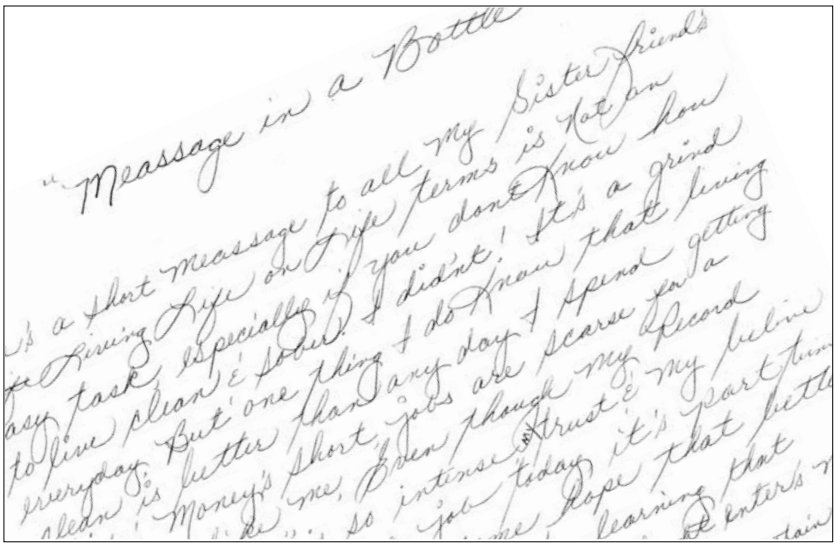 "Meassage in a Bottle
's a short meassage to all my Sister friend's
Living Life on Life terms is Not an
asy task, especially if you dont Know how
to live clean & sober. I did'nt! It's a grind
everyday. But one thing I do Know that living
clean is better than any day I spend getting
Money's short, jobs are scarse for a
me. Even though my Record
so intense, my trust & my belive
job today, it's part tim
me hope that bette
learning that
enter's
tain